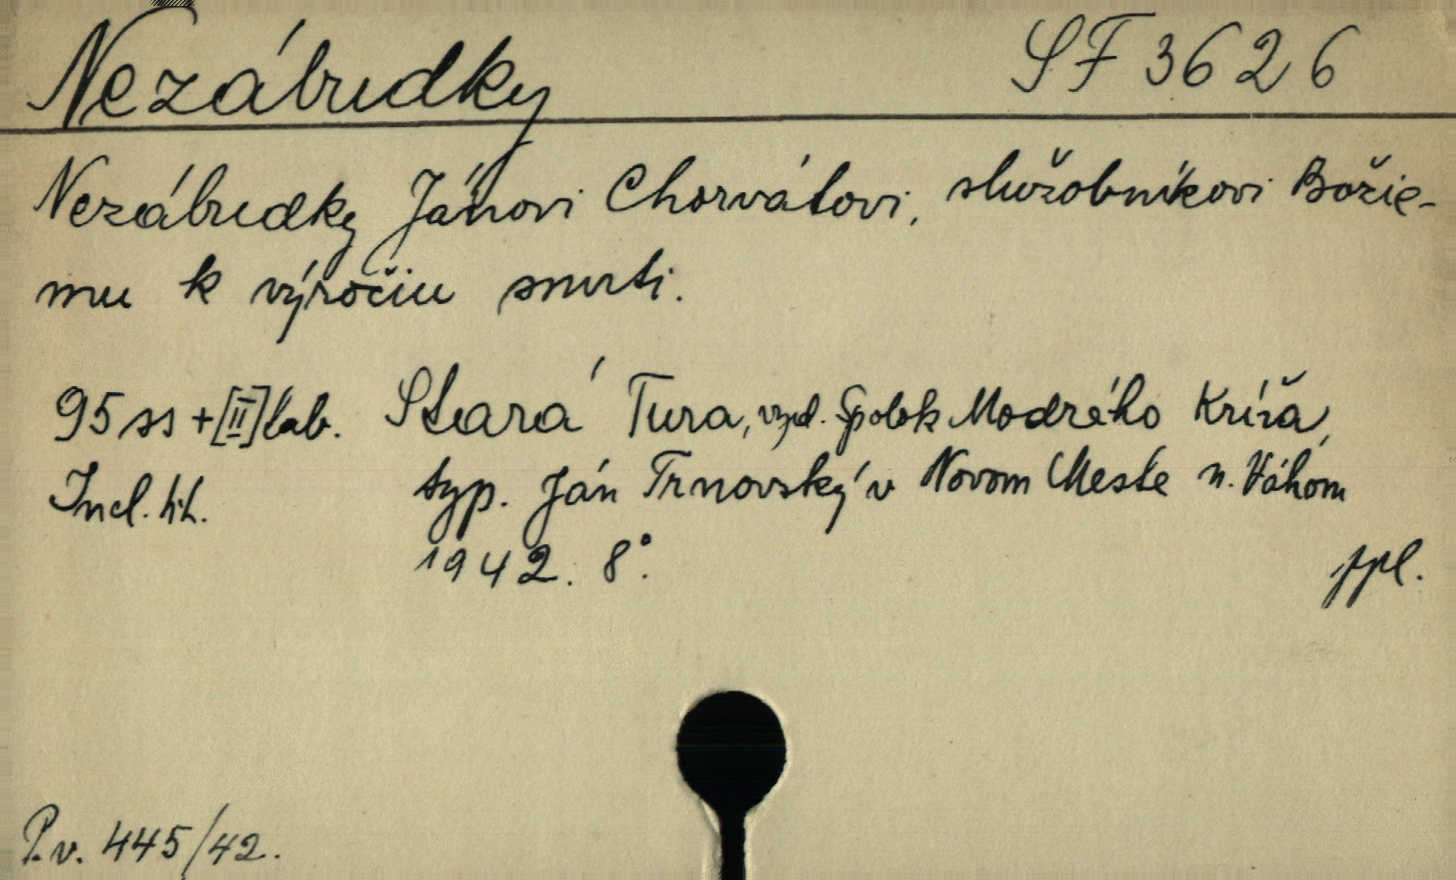 Nezábudky SF 3626
Nezábudky Jánovi Chorvátovi, služobníkovi Božie-
mu k výročiu smrti.
95 ss + [II] tab. Stará Tura, vyd. Spolok Modrého Kríža,
Incl. tit. typ. Ján Trnovský v Novom Meste n. Váhom
1942. 8°.
ppl.
P.v. 445/42.